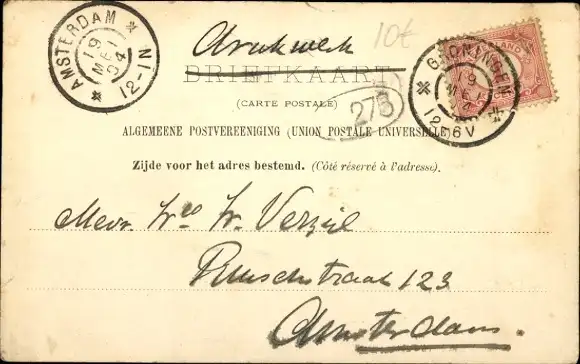 AMSTERDAM
19
MEI
04
12-1N
Drukwerk
10€
BRIEFKAART
(CARTE POSTALE)
275
GRONINGEN
9
MEI
12-6V
ALGEMEENE POSTVEREENIGING (UNION POSTALE UNIVERSELLE)
Zijde voor het adres bestemd. (Côté réservé à l'adresse).
Mevr. W. Verzijl
straat 123
Amsterdam.